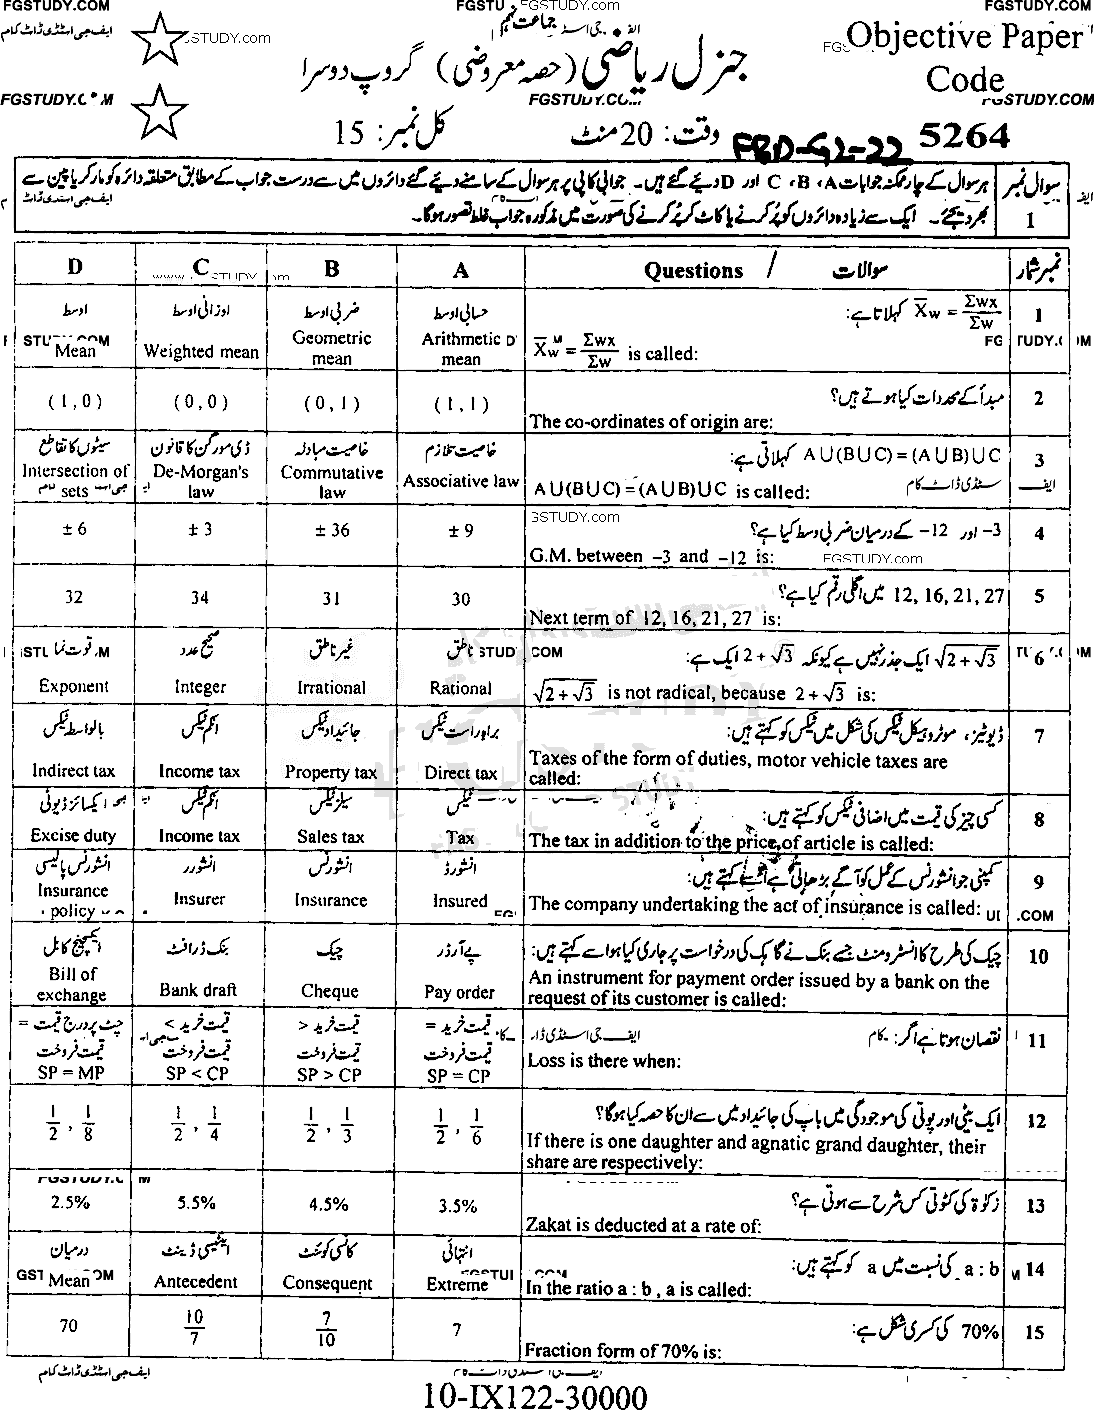 FGSTUDY.COM FGSTU FGSTUDY.com FGSTUDY.COM
ایف جی اسٹڈی ڈاٹ کام
جماعت نہم
STUDY.com
Objective Paper
Code
جنرل ریاضی (حصہ معروضی) گروپ دوسرا
FGSTUDY.COM
5264 FBD-G2-22 وقت: 20 منٹ کل نمبر: 15
سوال نمبر 1
ہر سوال کے چار ممکنہ جوابات A، B، C اور D دیئے گئے ہیں۔ جوابی کاپی پر ہر سوال کے سامنے دیئے گئے دائروں میں سے درست جواب کے مطابق متعلقہ دائرہ کو مارکر یا پین سے
بھر دیجئے۔ ایک سے زیادہ دائروں کو پُر کرنے یا کاٹ کر پُر کرنے کی صورت میں مذکورہ جواب غلط تصور ہوگا۔
D C B A Questions / سوالات نمبر شمار
اوسط اوزانی اوسط ضربی اوسط حسابی اوسط X̄w = Σwx/Σw کہلاتا ہے: 1
Mean Weighted mean Geometric mean Arithmetic mean X̄w = Σwx/Σw is called:
مبدأ کے محددات کیا ہوتے ہیں؟ 2
(1,0) (0,0) (0,1) (1,1) The co-ordinates of origin are:
سیٹوں کا تقاطع ڈی مورگن کا قانون خاصیت مبادلہ خاصیت تلازم A∪(B∪C)=(A∪B)∪C کہلاتی ہے: 3
Intersection of sets De-Morgan's law Commutative law Associative law A∪(B∪C)=(A∪B)∪C is called:
GSTUDY.com
±6 ±3 ±36 ±9 -3 اور -12 کے درمیان ضربی اوسط کیا ہے؟ 4
G.M. between -3 and -12 is: FGSTUDY.com
32 34 31 30 12, 16, 21, 27 میں اگلی رقم کیا ہے؟ 5
Next term of 12, 16, 21, 27 is:
قوت نما صحیح عدد غیر ناطق ناطق √(2+√3) ایک جذر نہیں ہے کیونکہ 2+√3 ایک ہے: 6
Exponent Integer Irrational Rational √(2+√3) is not radical, because 2+√3 is:
بالواسطہ ٹیکس انکم ٹیکس جائیداد ٹیکس براہ راست ٹیکس ڈیوٹیز، موٹر وہیکل ٹیکس کی شکل میں ٹیکس کو کہتے ہیں: 7
Indirect tax Income tax Property tax Direct tax Taxes of the form of duties, motor vehicle taxes are
called:
ایکسائز ڈیوٹی انکم ٹیکس سیلز ٹیکس ٹیکس کسی چیز کی قیمت میں اضافی ٹیکس کو کہتے ہیں: 8
Excise duty Income tax Sales tax Tax The tax in addition to the price of article is called:
انشورنس پالیسی انشورر انشورنس انشورڈ کمپنی جو انشورنس کے عمل کو آگے بڑھاتی ہے اسے کہتے ہیں: 9
Insurance policy Insurer Insurance Insured The company undertaking the act of insurance is called:
ایکسچینج کا بل بنک ڈرافٹ چیک پے آرڈر چیک کی طرح کا انسٹرومنٹ جسے بنک نے گاہک کی درخواست پر جاری کیا ہو اسے کہتے ہیں: 10
Bill of exchange Bank draft Cheque Pay order An instrument for payment order issued by a bank on the
request of its customer is called:
چٹ پر درج قیمت = قیمت فروخت قیمت خرید > قیمت فروخت قیمت خرید < قیمت فروخت قیمت خرید = قیمت فروخت نقصان ہوتا ہے اگر: 11
SP = MP SP < CP SP > CP SP = CP Loss is there when:
1/2, 1/8 1/2, 1/4 1/2, 1/3 1/2, 1/6 ایک بیٹی اور پوتی کی موجودگی میں باپ کی جائیداد میں سے ان کا حصہ کیا ہوگا؟ 12
If there is one daughter and agnatic grand daughter, their
share are respectively:
2.5% 5.5% 4.5% 3.5% زکوٰۃ کی کٹوتی کس شرح سے ہوتی ہے؟ 13
Zakat is deducted at a rate of:
درمیان اینٹیسی ڈینٹ کانسی کوئنٹ انتہائی a : b کی نسبت میں a کو کہتے ہیں: 14
Mean Antecedent Consequent Extreme In the ratio a : b , a is called:
70 10/7 7/10 7 70% کی کسری شکل ہے: 15
Fraction form of 70% is:
ایف جی اسٹڈی ڈاٹ کام
10-IX122-30000